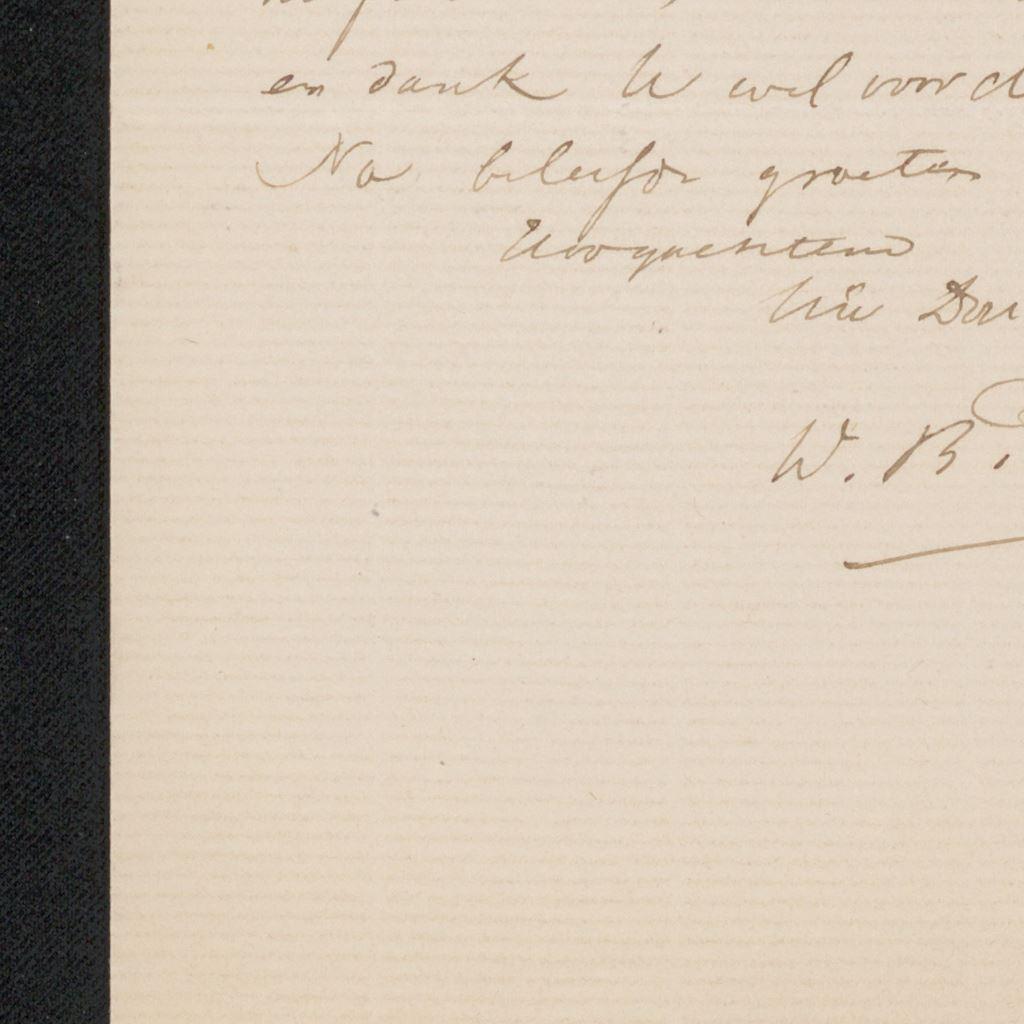 en dank U wel voor d
Na beleefde groeten
Hoogachtend
Uw Dw
W. B.